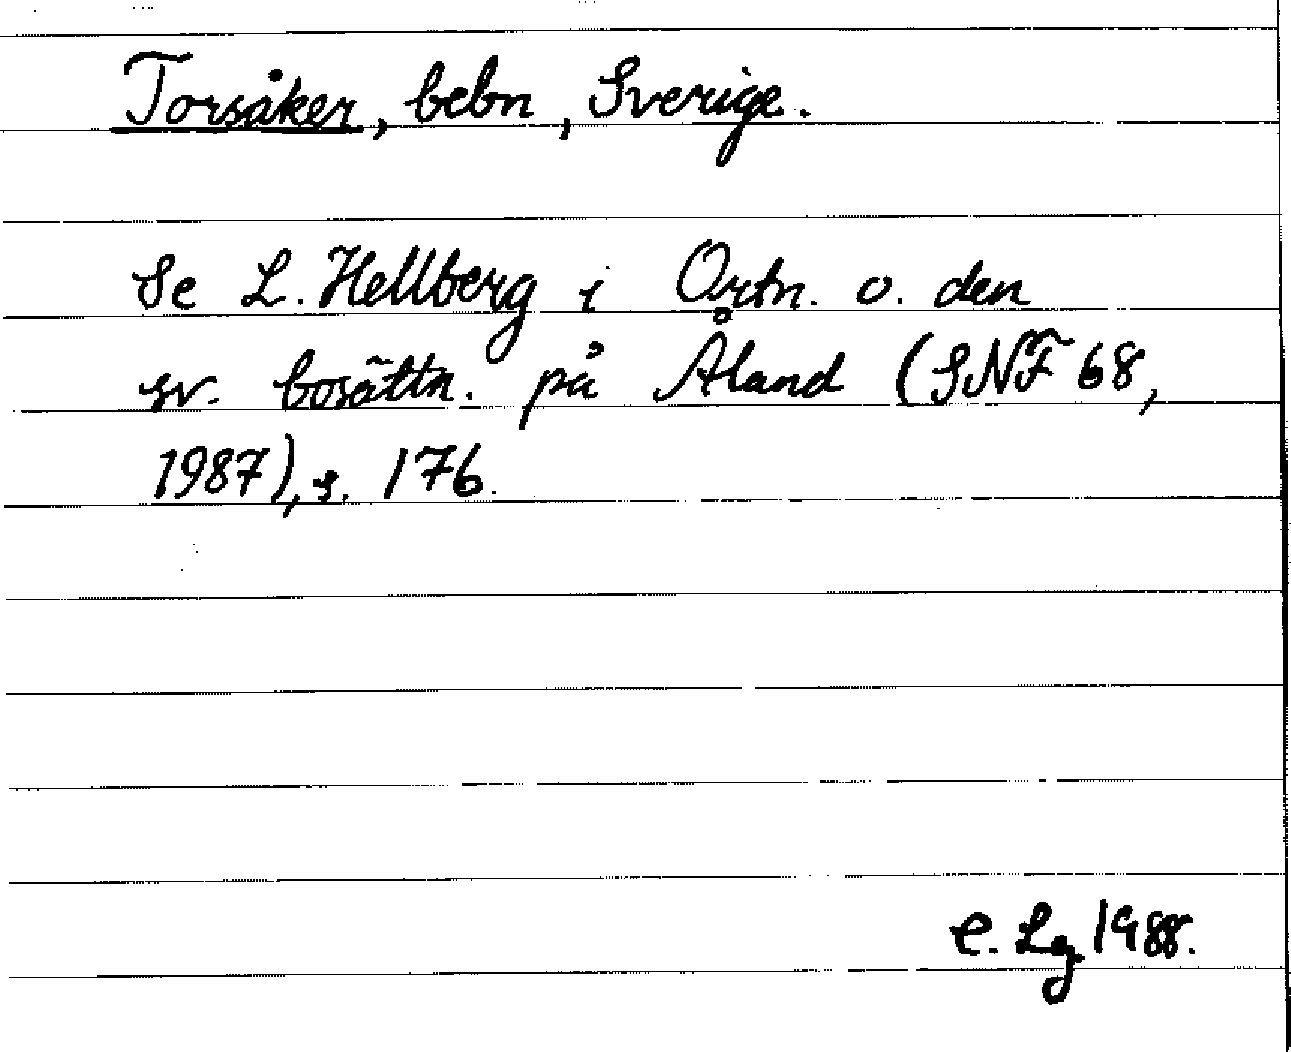 Torsåker, bebn, Sverige.
Se L. Hellberg i Ortn. o. den
sv. bosättn. på Åland (SNF 68,
1987), s. 176.
C. Lg 1988.